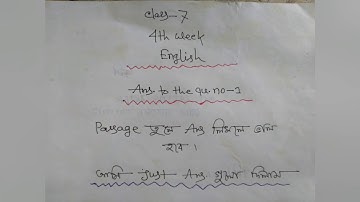 Class-7
4th week
English
Ans to the qu no-1
Passage তুলে Ans লিখলে ভাল
হবে।
আমি Just Ans. গুলো দিলাম